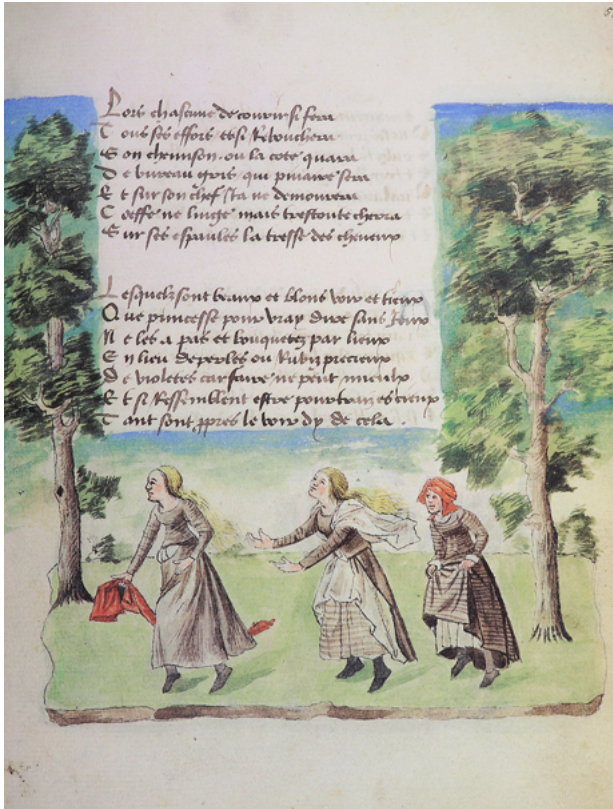 5
Lors chascune de courir si fera
Tous ses effors et si Rebouchera
Son chemison. ou la cote quara
De bureau gris qui pinaire sera
Et sur son chef Ja ne demourra
Coeffe ne linge mais trestoute cherra
Sur ses espaules la tresse des cheveux
Lesquelz sont beaux et blons voir et tieux
Que princesse pour vray dire sans Jeux
Ne les a pas et bouquetez par lieux
En lieu de perles ou Rubiz precieux
De violetes car faire ne peut mieulx
Et si Ressemblent estre pourtraiz es cieux
Tant sont ppres le voir dy de cela .